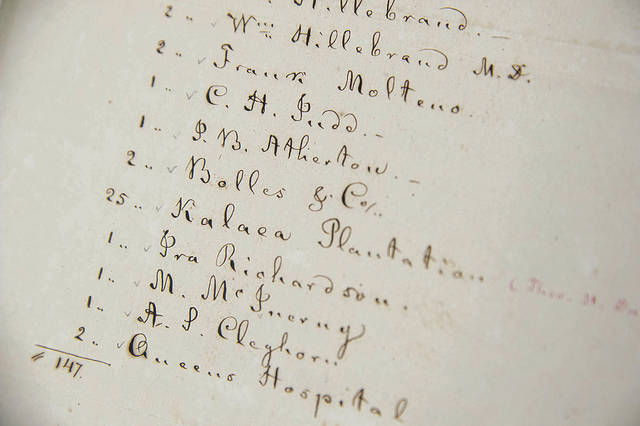 Hillebrand. –
2 " Wm Hillebrand M.D.
2 " Frank Molteno.
1 " C. H. Judd. –
1 " J. B. Atherton. –
2 " Bolles & Co/.
25 " Kalaea Plantation
1 " Ira Richardson.
1 " M. McInerny
1 " A. S. Cleghorn
2 " Queens Hospital
147.